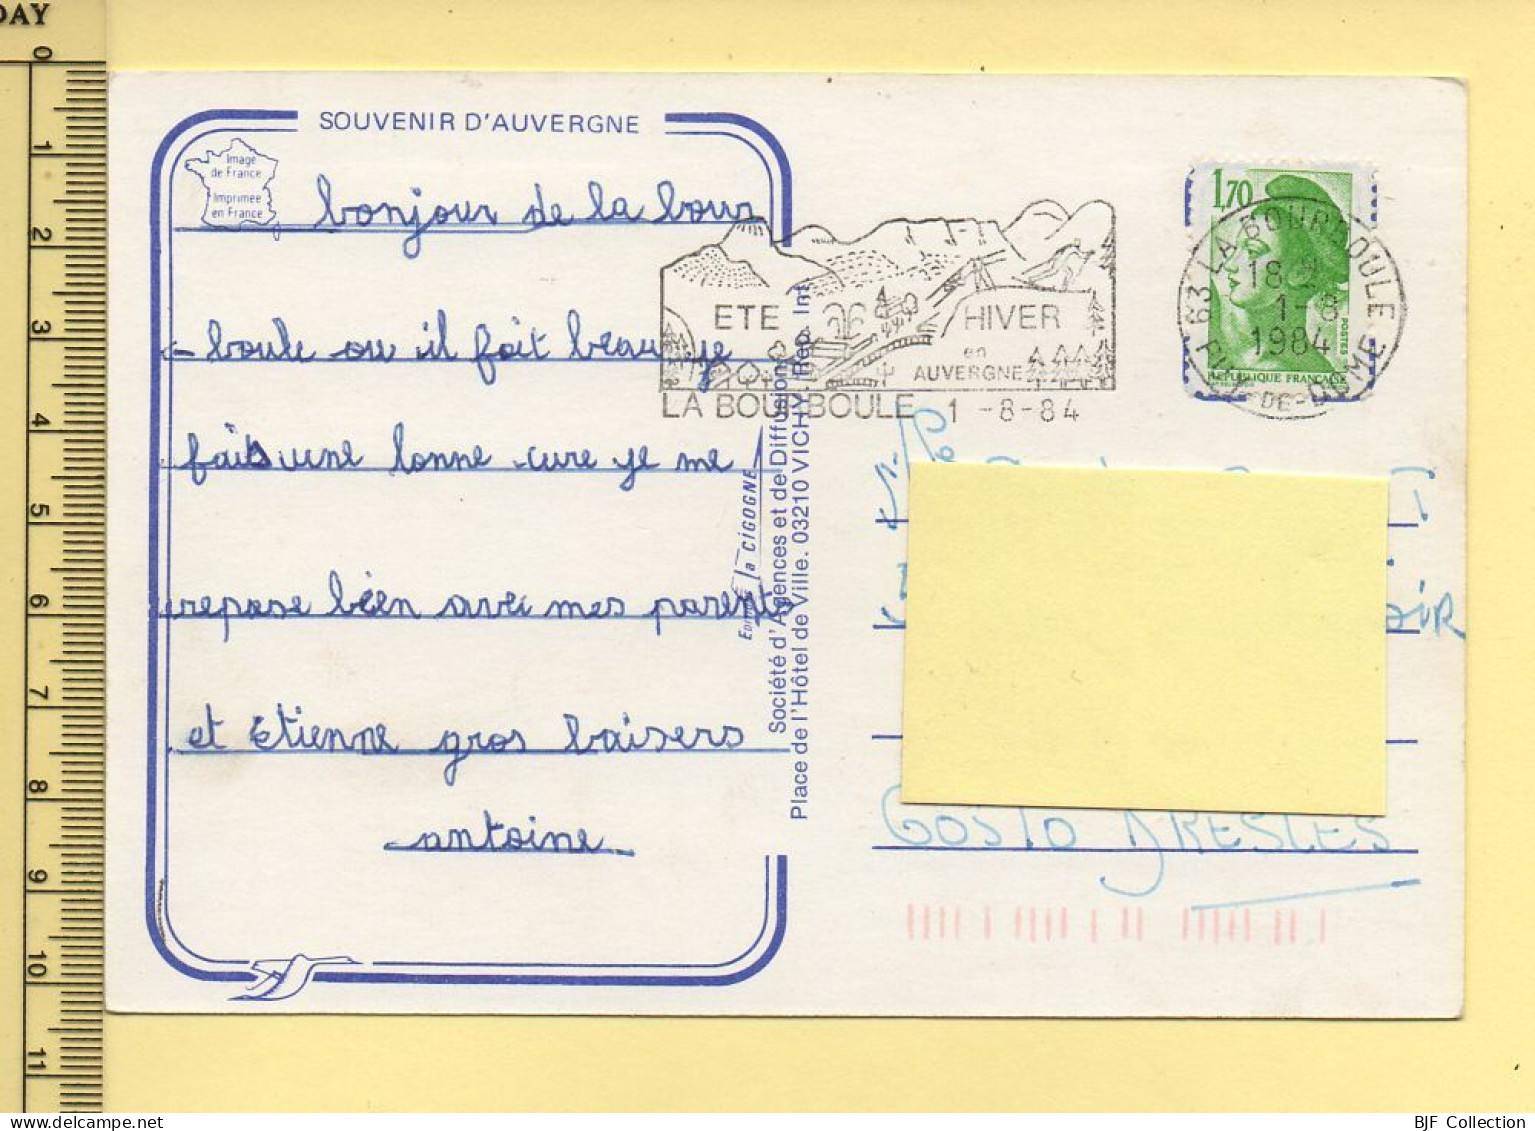 DAY
0
1
2
3
4
5
6
7
8
9
10
11
SOUVENIR D'AUVERGNE
Image
de France
Imprimée
en France
bonjour de la bour
- boule ou il fait beau je
fais une bonne cure je me
repose bien avec mes parents
et Étienne gros baisers
antoine
ETE
HIVER
en
AUVERGNE
LA BOURBOULE 1-8-84
EDITIONS la CIGOGNE
Société d'Agences et de Diffusion
Place de l'Hôtel de Ville. 03210 VICHY. Rep. Int.
1,70
POSTES
REPUBLIQUE FRANÇAISE
63 LA BOURBOULE
18
1-8
1984
PUY-DE-DOME
60510 BRESLES
BJF Collection